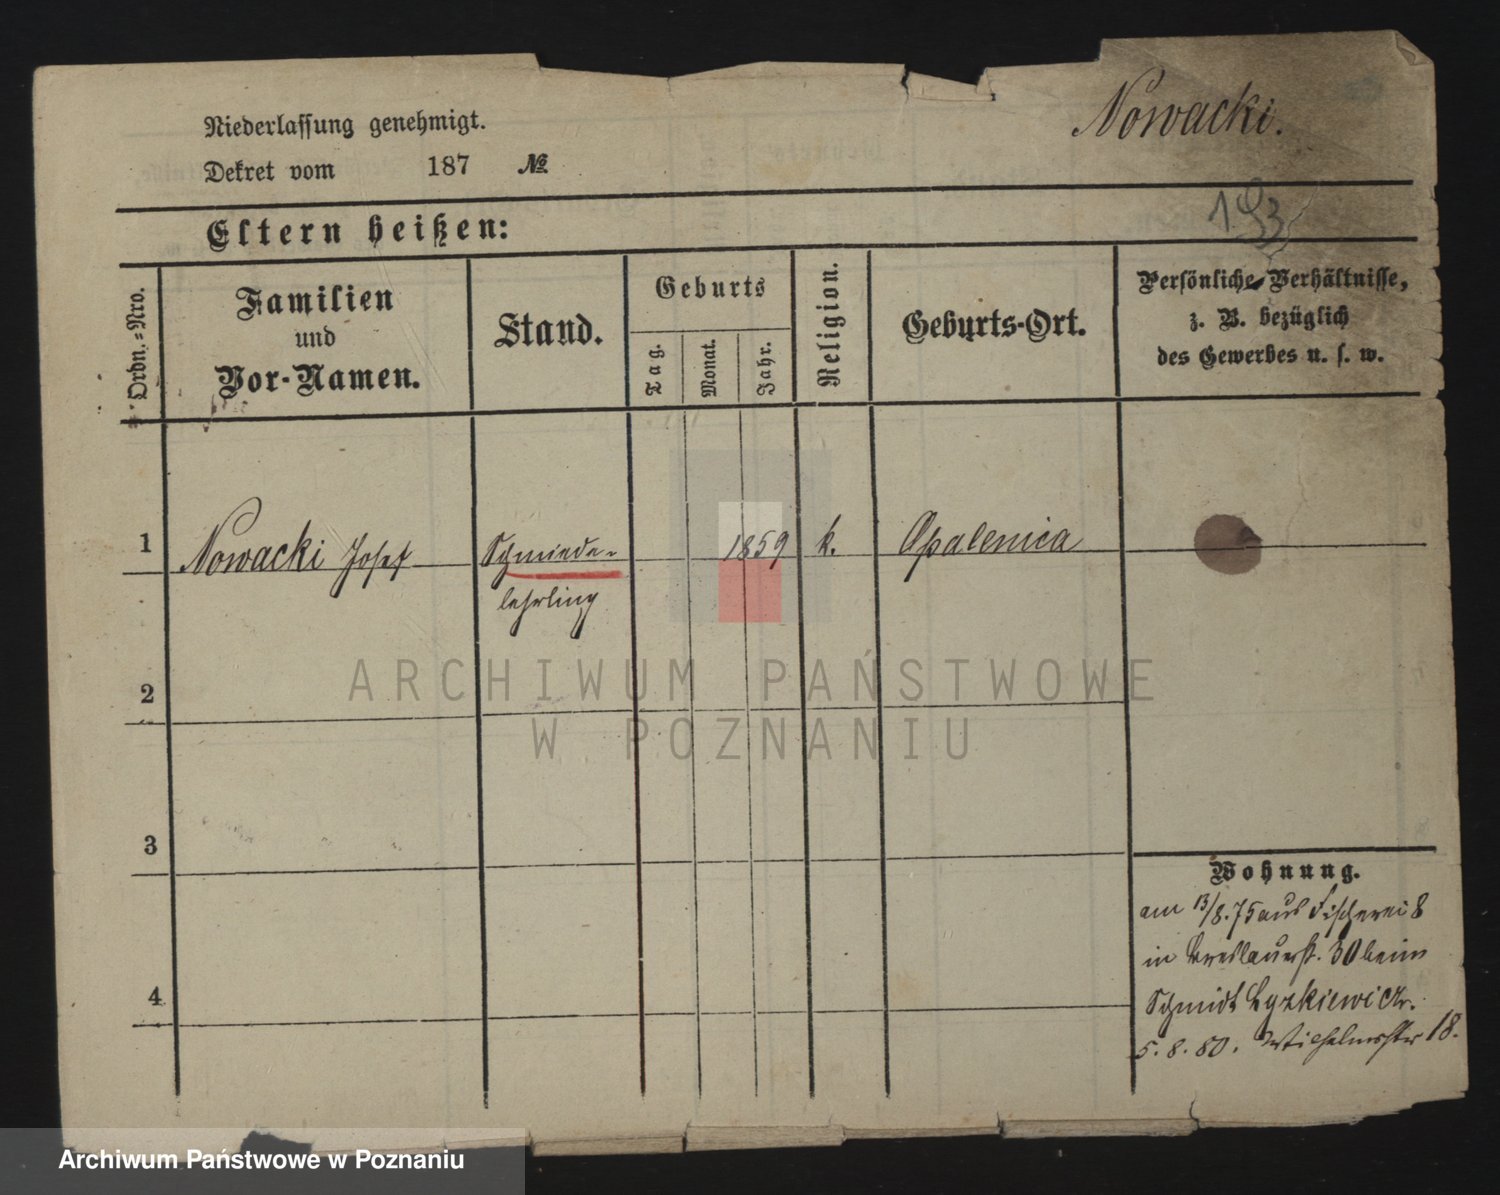 Nowacki.
Niederlassung genehmigt.
Dekret vom 187 №
193
Eltern heißen:
Ordn.-Nro.
Familien
und
Vor-Namen.
Stand.
Geburts
Tag.
Monat.
Jahr.
Religion.
Geburts-Ort.
Persönliche Verhältnisse,
z. B. bezüglich
des Gewerbes u. s. w.
1 Nowacki Josef Schmiede- 1859 k. Opalenica
lehrling
2
3
4
Wohnung.
am 13/8.75 aus Fischerei 8
in Breslauerst. 30 beim
Schmidt
5.8.80. Wilhelmsstr 18.
ARCHIWUM PAŃSTWOWE
W POZNANIU
Archiwum Państwowe w Poznaniu